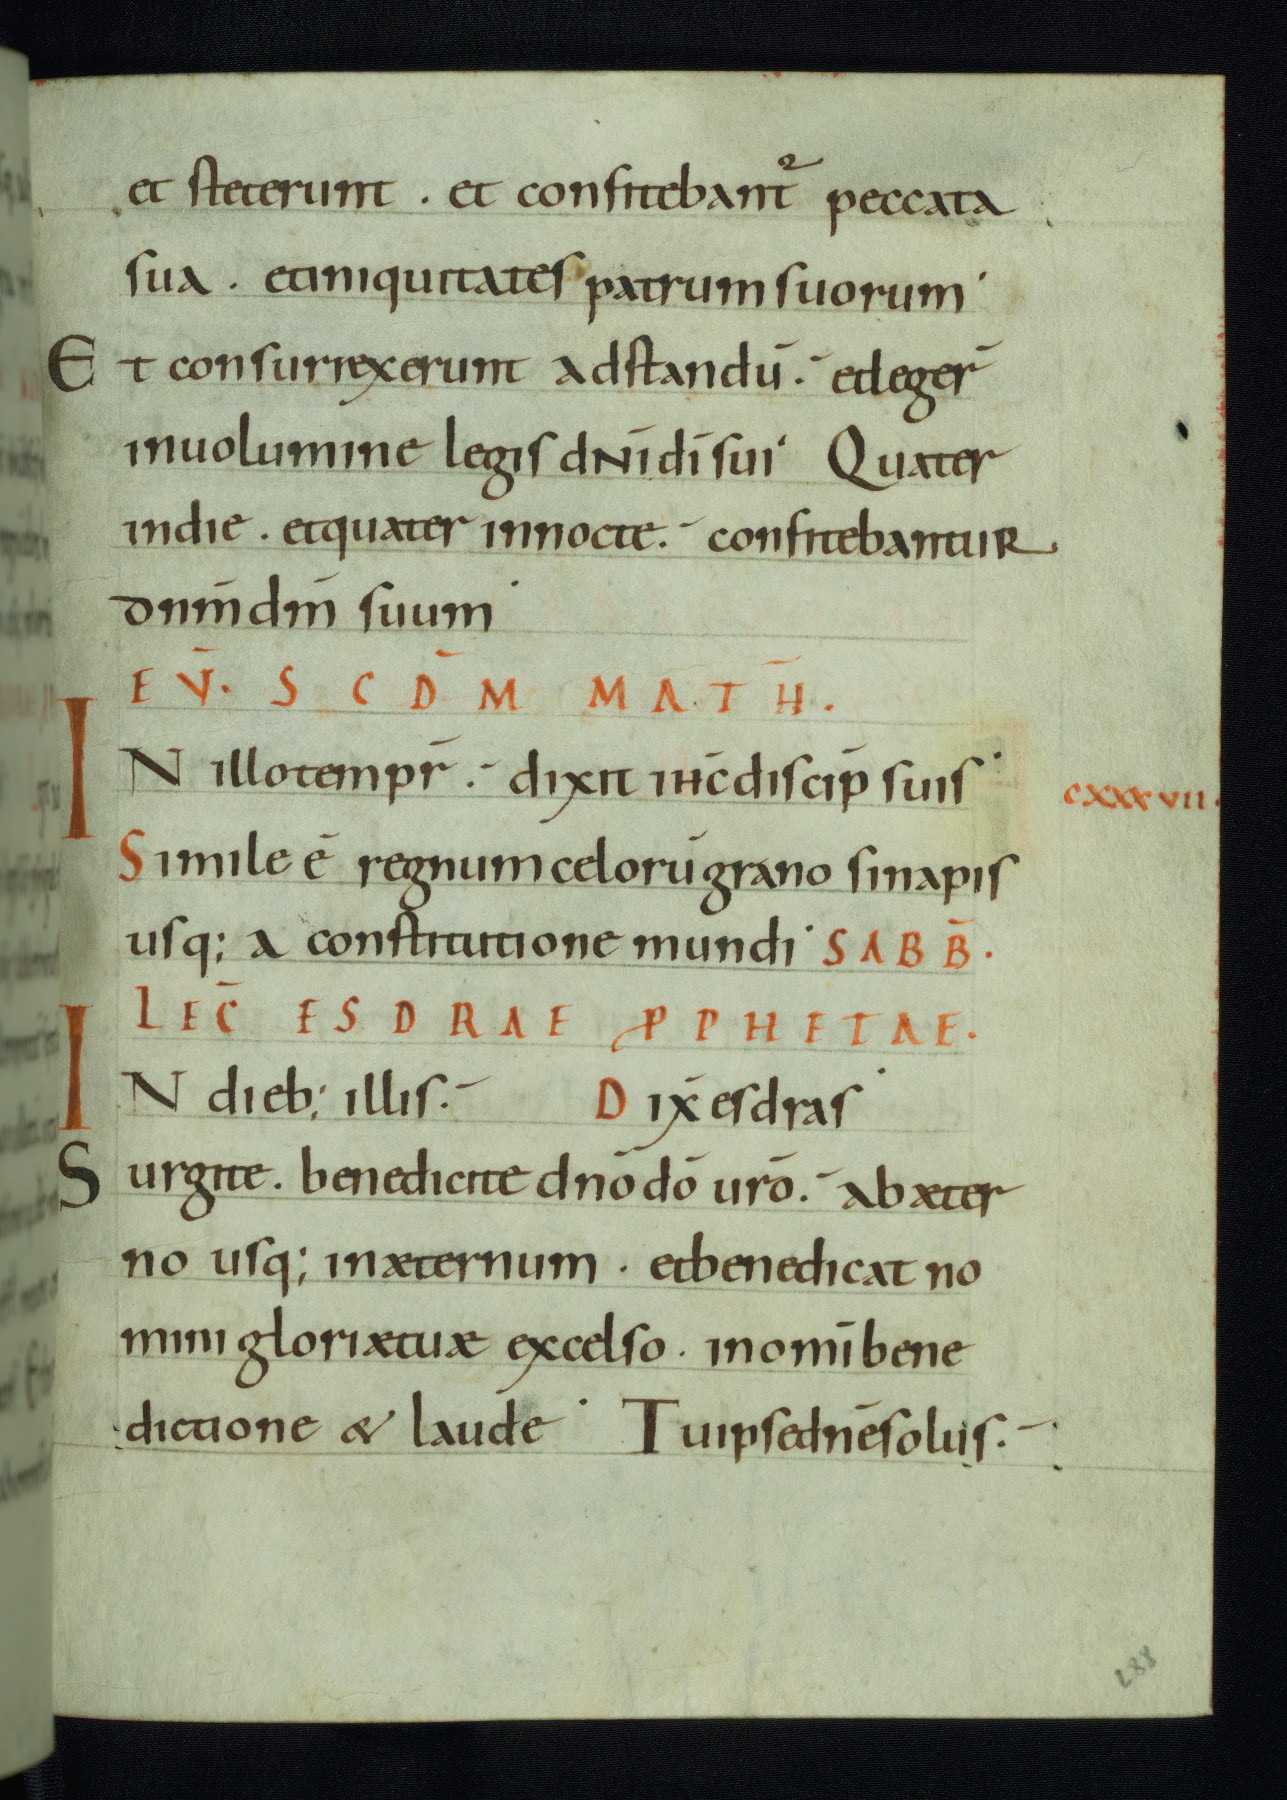 et steterunt . et confitebant᷑ peccata
sua . et iniquitates patrum suorum
Et consurrexerunt ad standū . et leger̄
in uolumine legis dn̄i dī sui Quater
in die . et quater in nocte . confitebantur
dnm̄ dm̄ suum
EV̄. SCD̄M MATH̄.
IN illo tempr̄ . dixit ih̄c discip̄ suis
CXXXVII.
Simile ē regnum celorū grano sinapis
usq; a constitutione mundi SABB̄.
LEC̄ ESDRAE PPHETAE.
IN dieb; illis . Dix̄ esdras
Surgite . benedicite dn̄o dō urō . ab æter
no usq; in æternum . et benedicat no
mini gloriæ tuæ excelso . in om̄i bene
dictione & laude Tu ipse dn̄e solus .
288